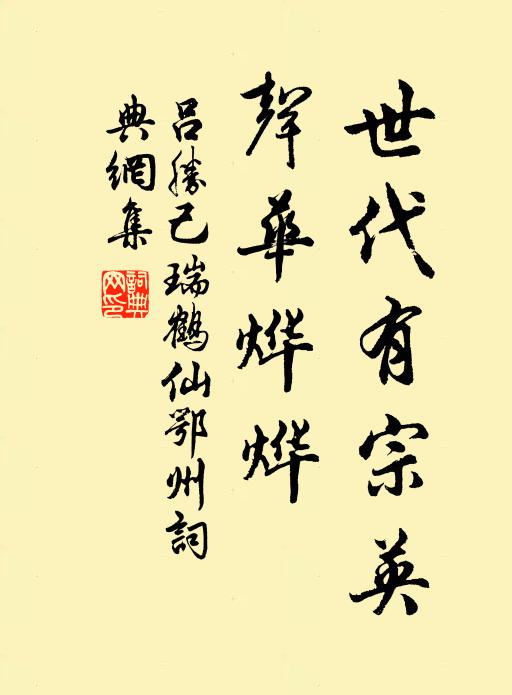 世代有宗英
聲華烨烨
吕勝己瑞鶴仙鄂州詞
典網集
詞典網印